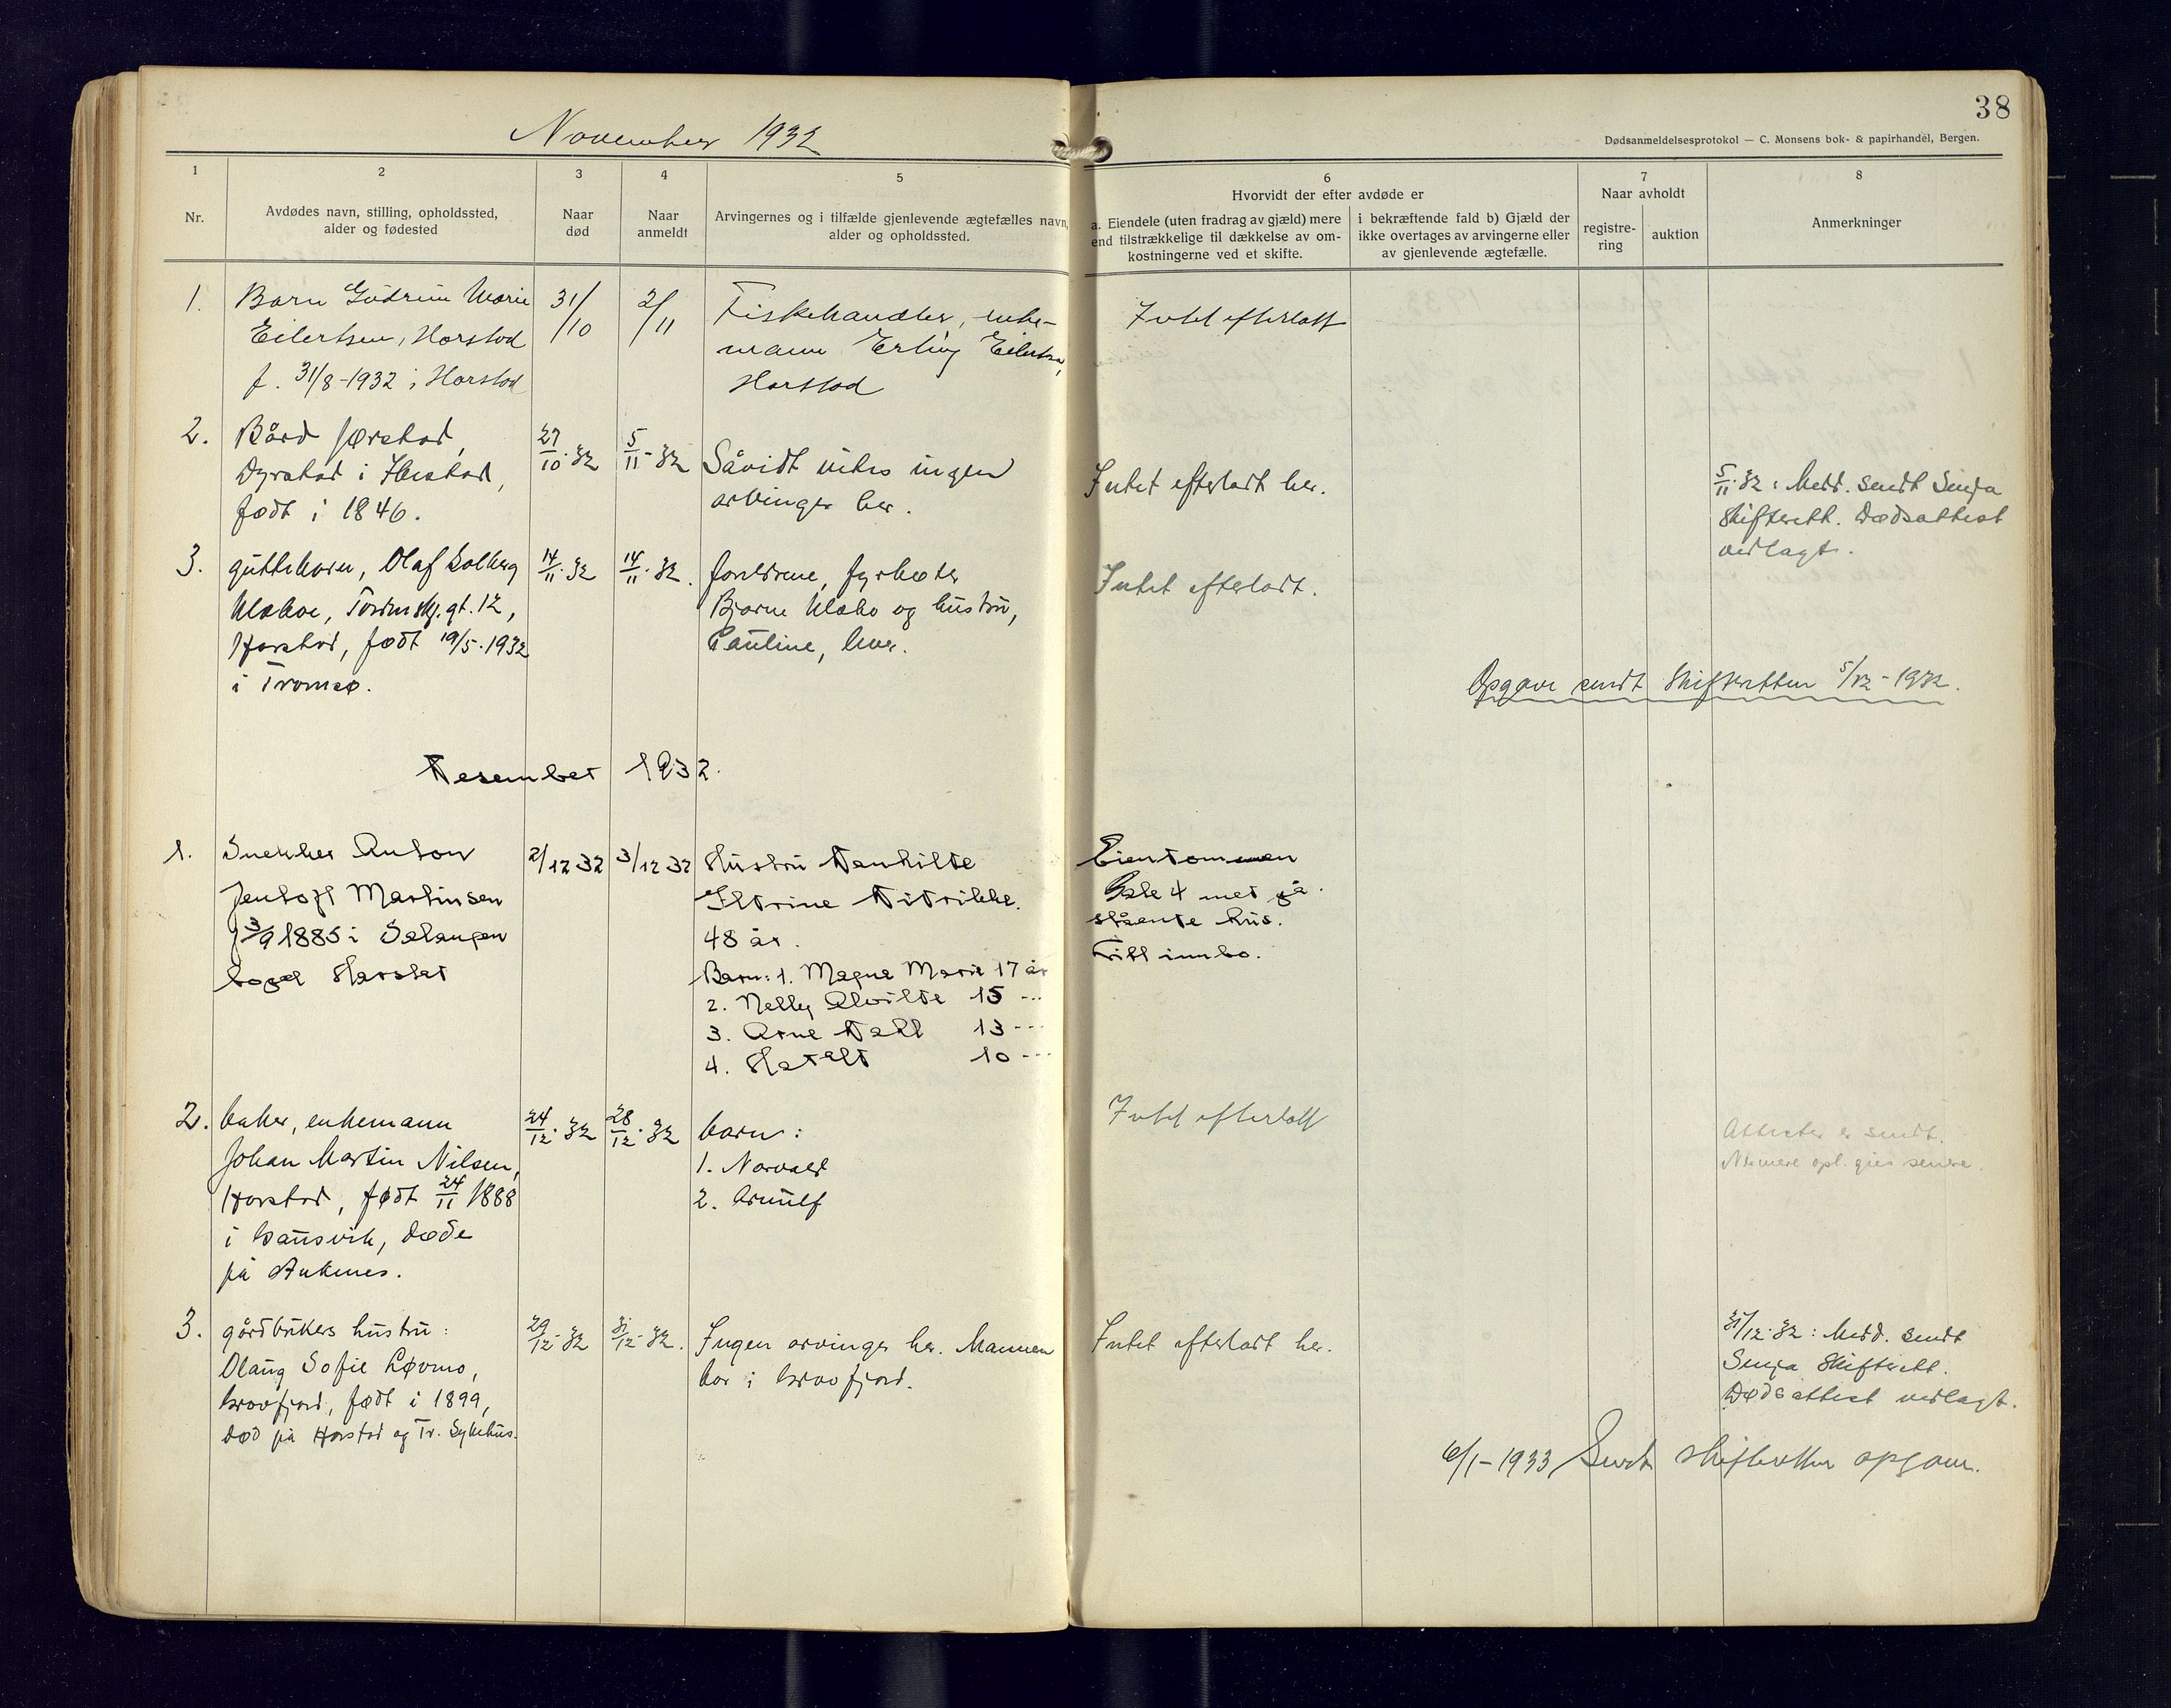 38
November 1932
Dødsanmeldelsesprotokol — C. Monsens bok- & papirhandel, Bergen.
1
Nr.
2
Avdødes navn, stilling, opholdssted,
alder og fødested
3
Naar
død
4
Naar
anmeldt
5
Arvingernes og i tilfælde gjenlevende ægtefælles navn,
alder og opholdssted.
6
Hvorvidt der efter avdøde er
a. Eiendele (uten fradrag av gjæld) mere
end tilstrækkelige til dækkelse av om-
kostningerne ved et skifte.
i bekræftende fald b) Gjæld der
ikke overtages av arvingerne eller
av gjenlevende ægtefælle.
7
Naar avholdt
registre-
ring
auktion
8
Anmerkninger
1.
Barn Gudrun Marie
Eilertsen, Harstad
f. 31/8-1932 i Harstad
31/10
2/11
Fiskehandler, enke-
mann Erling Eilertsen,
Harstad
Intet efterlatt
2.
Bård
Dyrstad i Ibestad,
født i 1846.
27/10.32
5/11-32
Såvidt vites ingen
arvinger her.
Intet efterlatt her.
5/11.32: Medd. sendt Senja
Skifterett. Dødsattest
vedlagt.
3.
guttebarn, Olaf Solberg
gt. 12,
Harstad, født 19/5.1932
i Tromsø.
14/11.32
14/11.32.
foreldrene, fyrbøter
Bjarne og hustru,
Pauline, her.
Intet efterlatt.
Opgave sendt Skifteretten 5/12-1932.
Desember 1932.
1.
Snekker Anton
Jentoft Martinsen
f 3/9 1885 i Salangen
Harstad
2/12 32
3/12 32
Hustru
48 år.
Barn: 1. Magna Marie 17 år
2. Nelly Alvilde 15 --
3. Arne Dahl 13 --
4. Harald 10 --
Eiendommen
4 med på
stående hus.
Litt innbo.
2.
baker, enkemann
Johan Martin Nilsen,
Harstad, født 24/11 1888
i Gausvik, døde
på Ankenes.
24/12.32
28/12.32
barn:
1. Norvald
2. Arnulf
Intet efterlatt
Attester er sendt.
Nærmere opl. gies senere.
3.
gårdbrukers hustru:
Olaug Sofie Løvmo,
Grovfjord, født i 1899,
død på Harstad og Tr. Sykehus.
29/12-32
31/12-32.
Ingen arvinger her. Mannen
bor i Grovfjord.
Intet efterlatt her.
31/12.32: Medd. sendt
Senja Skifterett.
Dødsattest vedlagt.
6/1-1933 Sendt skifteretten opgave.